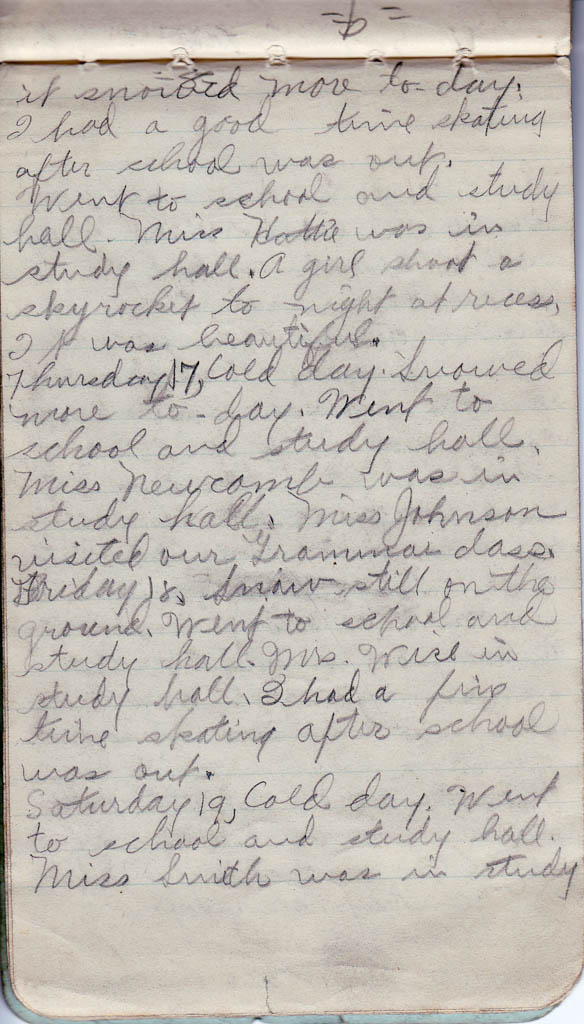 =6=
it snowed more to-day.
I had a good time skating
after school was out.
Went to school and study
hall. Miss Hattie was in
study hall. A girl shoot a
skyrocket to night at recess.
It was beautiful.
Thursday 17, Cold day. Snowed
more to-day. Went to
school and study hall.
Miss Newcomb was in
study hall. Miss Johnson
visited our Grammar class.
Friday 18, Snow still on the
ground. Went to school and
study hall. Mrs. Wise in
study hall. I had a fine
time skating after school
was out.
Saturday 19, Cold day. Went
to school and study hall.
Miss Smith was in study